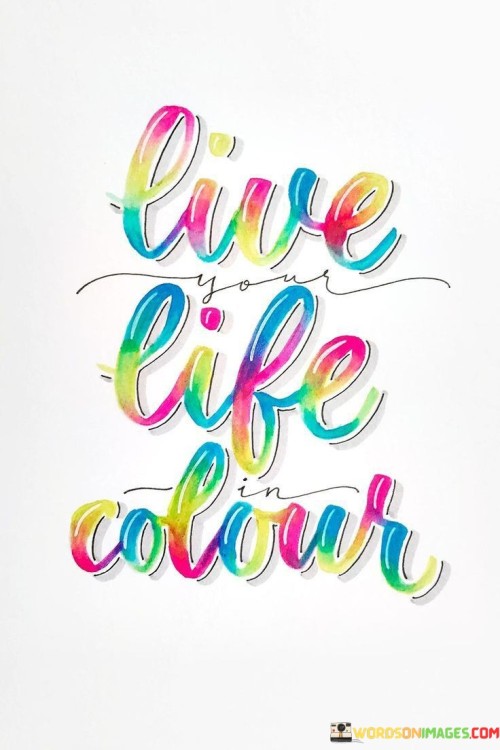 live
your
life
in
colour
WORDSONIMAGES.COM